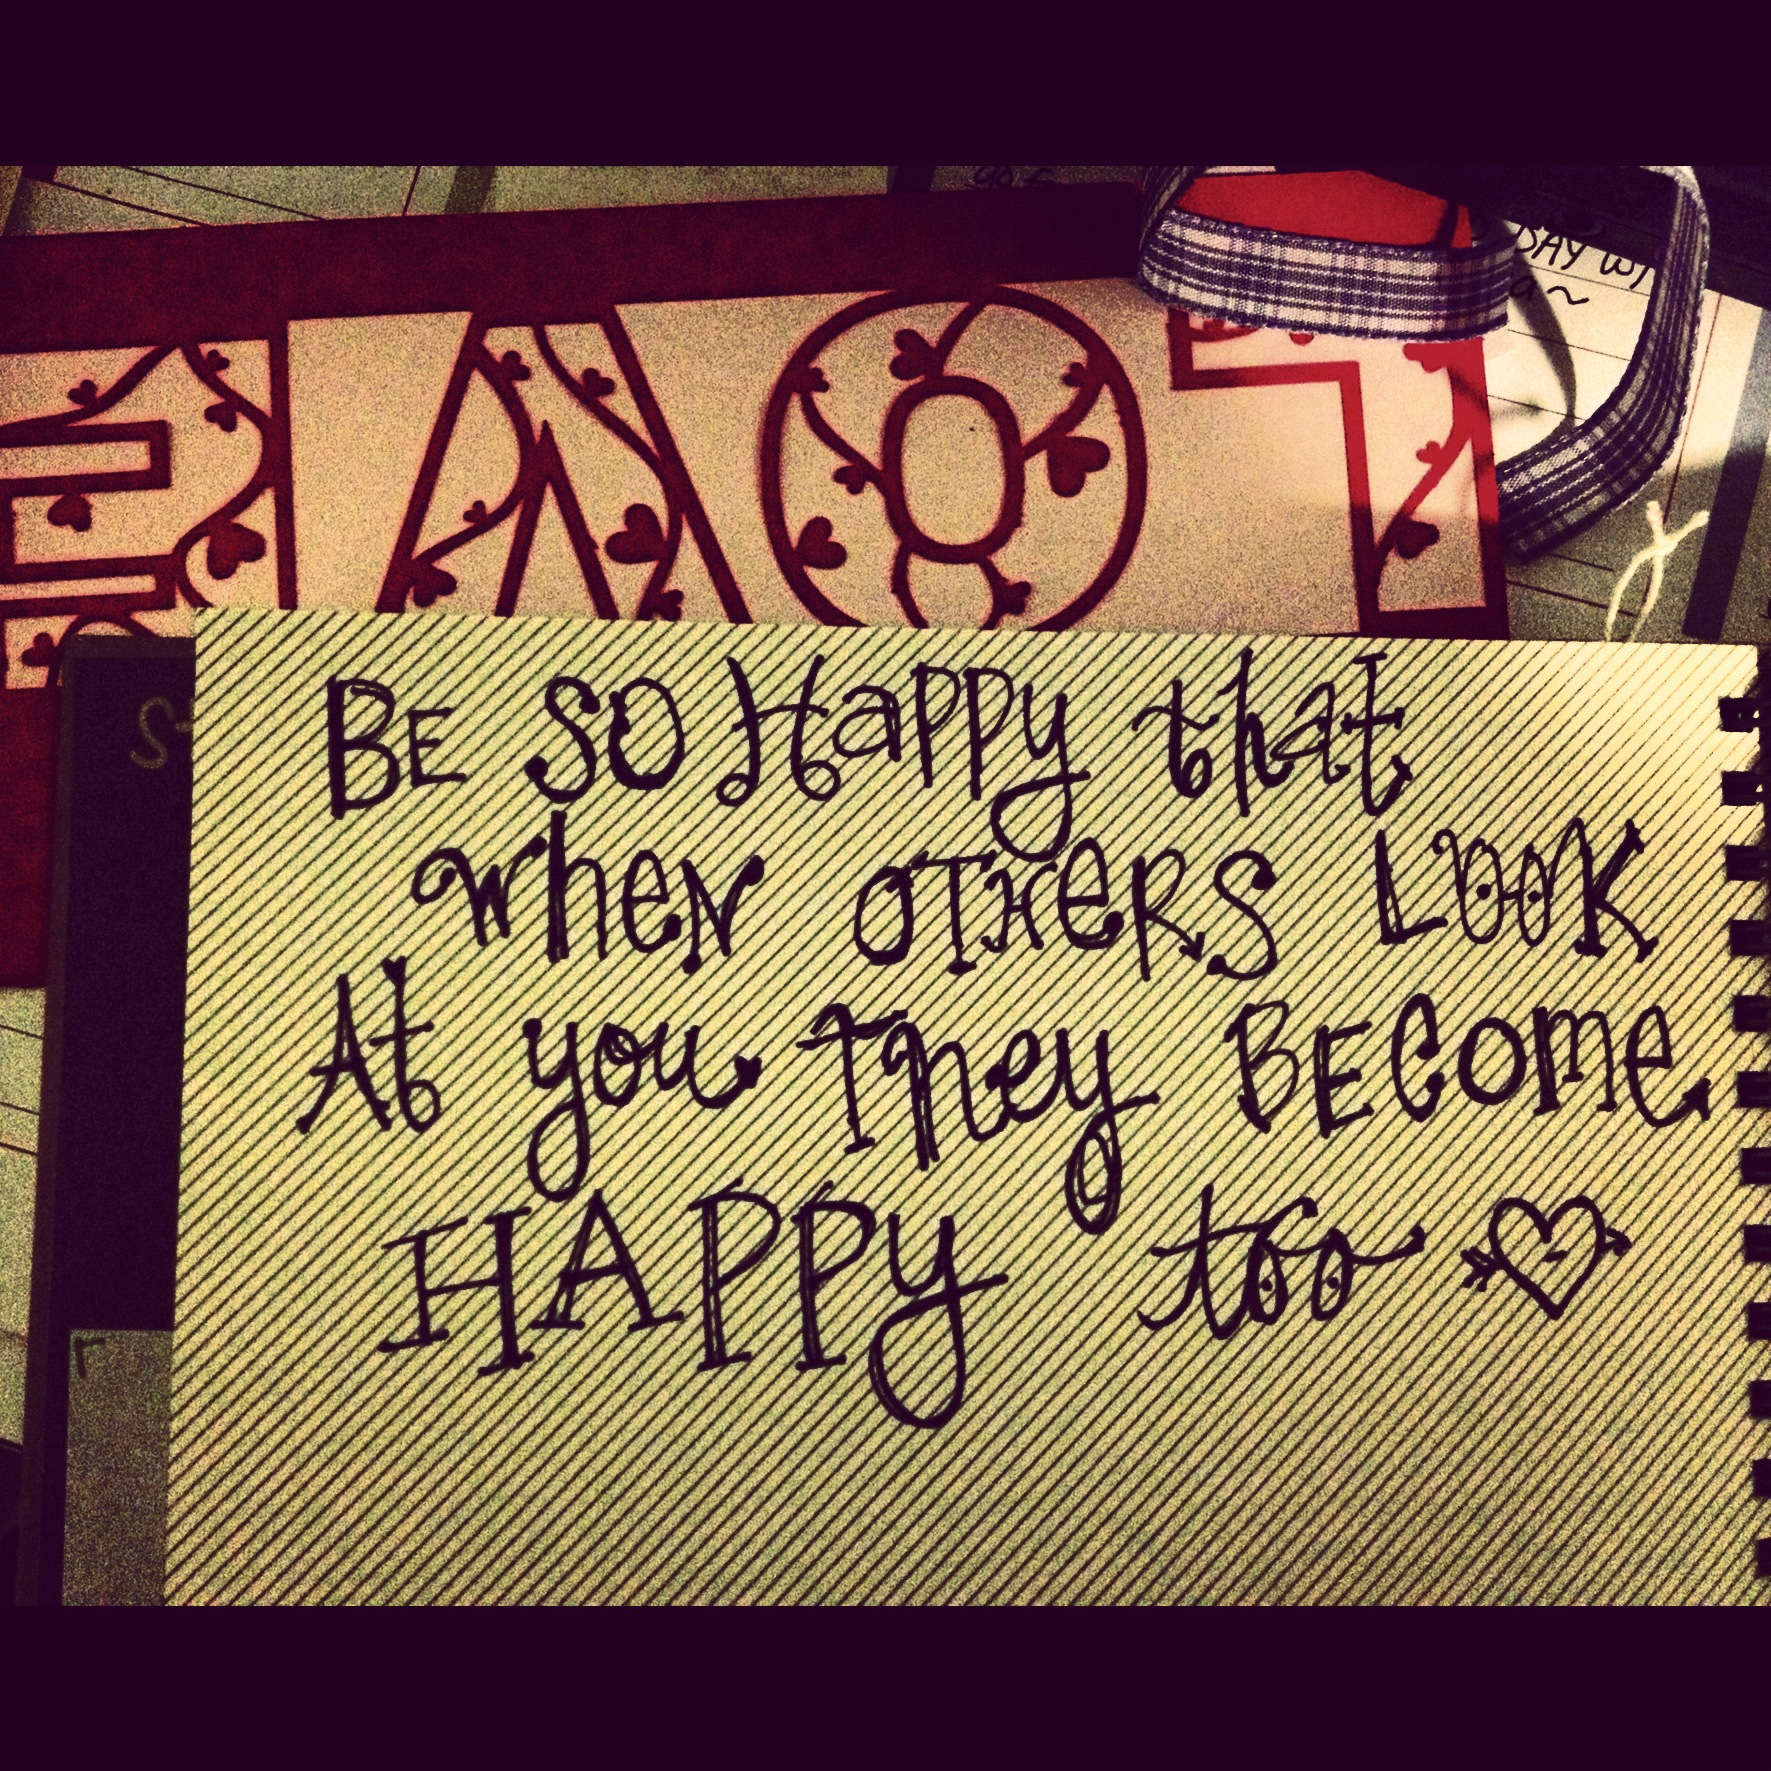 LOVE
DAY w/
BE SO Happy that
When OTHERS LOOK
At you They BECOme
HAPPy too